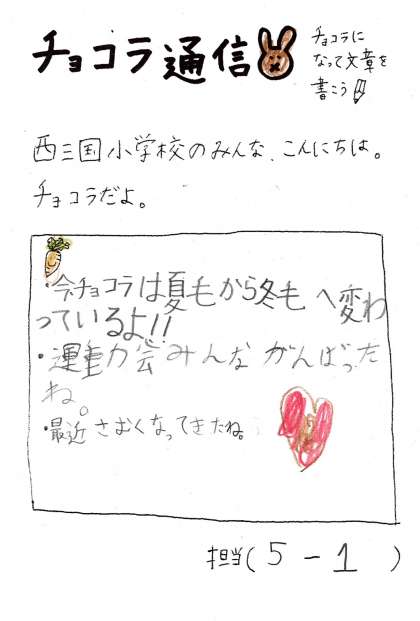 チョコラ通信
チョコラに
なって文章を
書こう
西三国小学校のみんな、こんにちは。
チョコラだよ。
・今チョコラは夏毛から冬毛へ変わ
っているよ!!
・運動会みんながんばった
ね。
・最近さむくなってきたね。
担当(5-1)